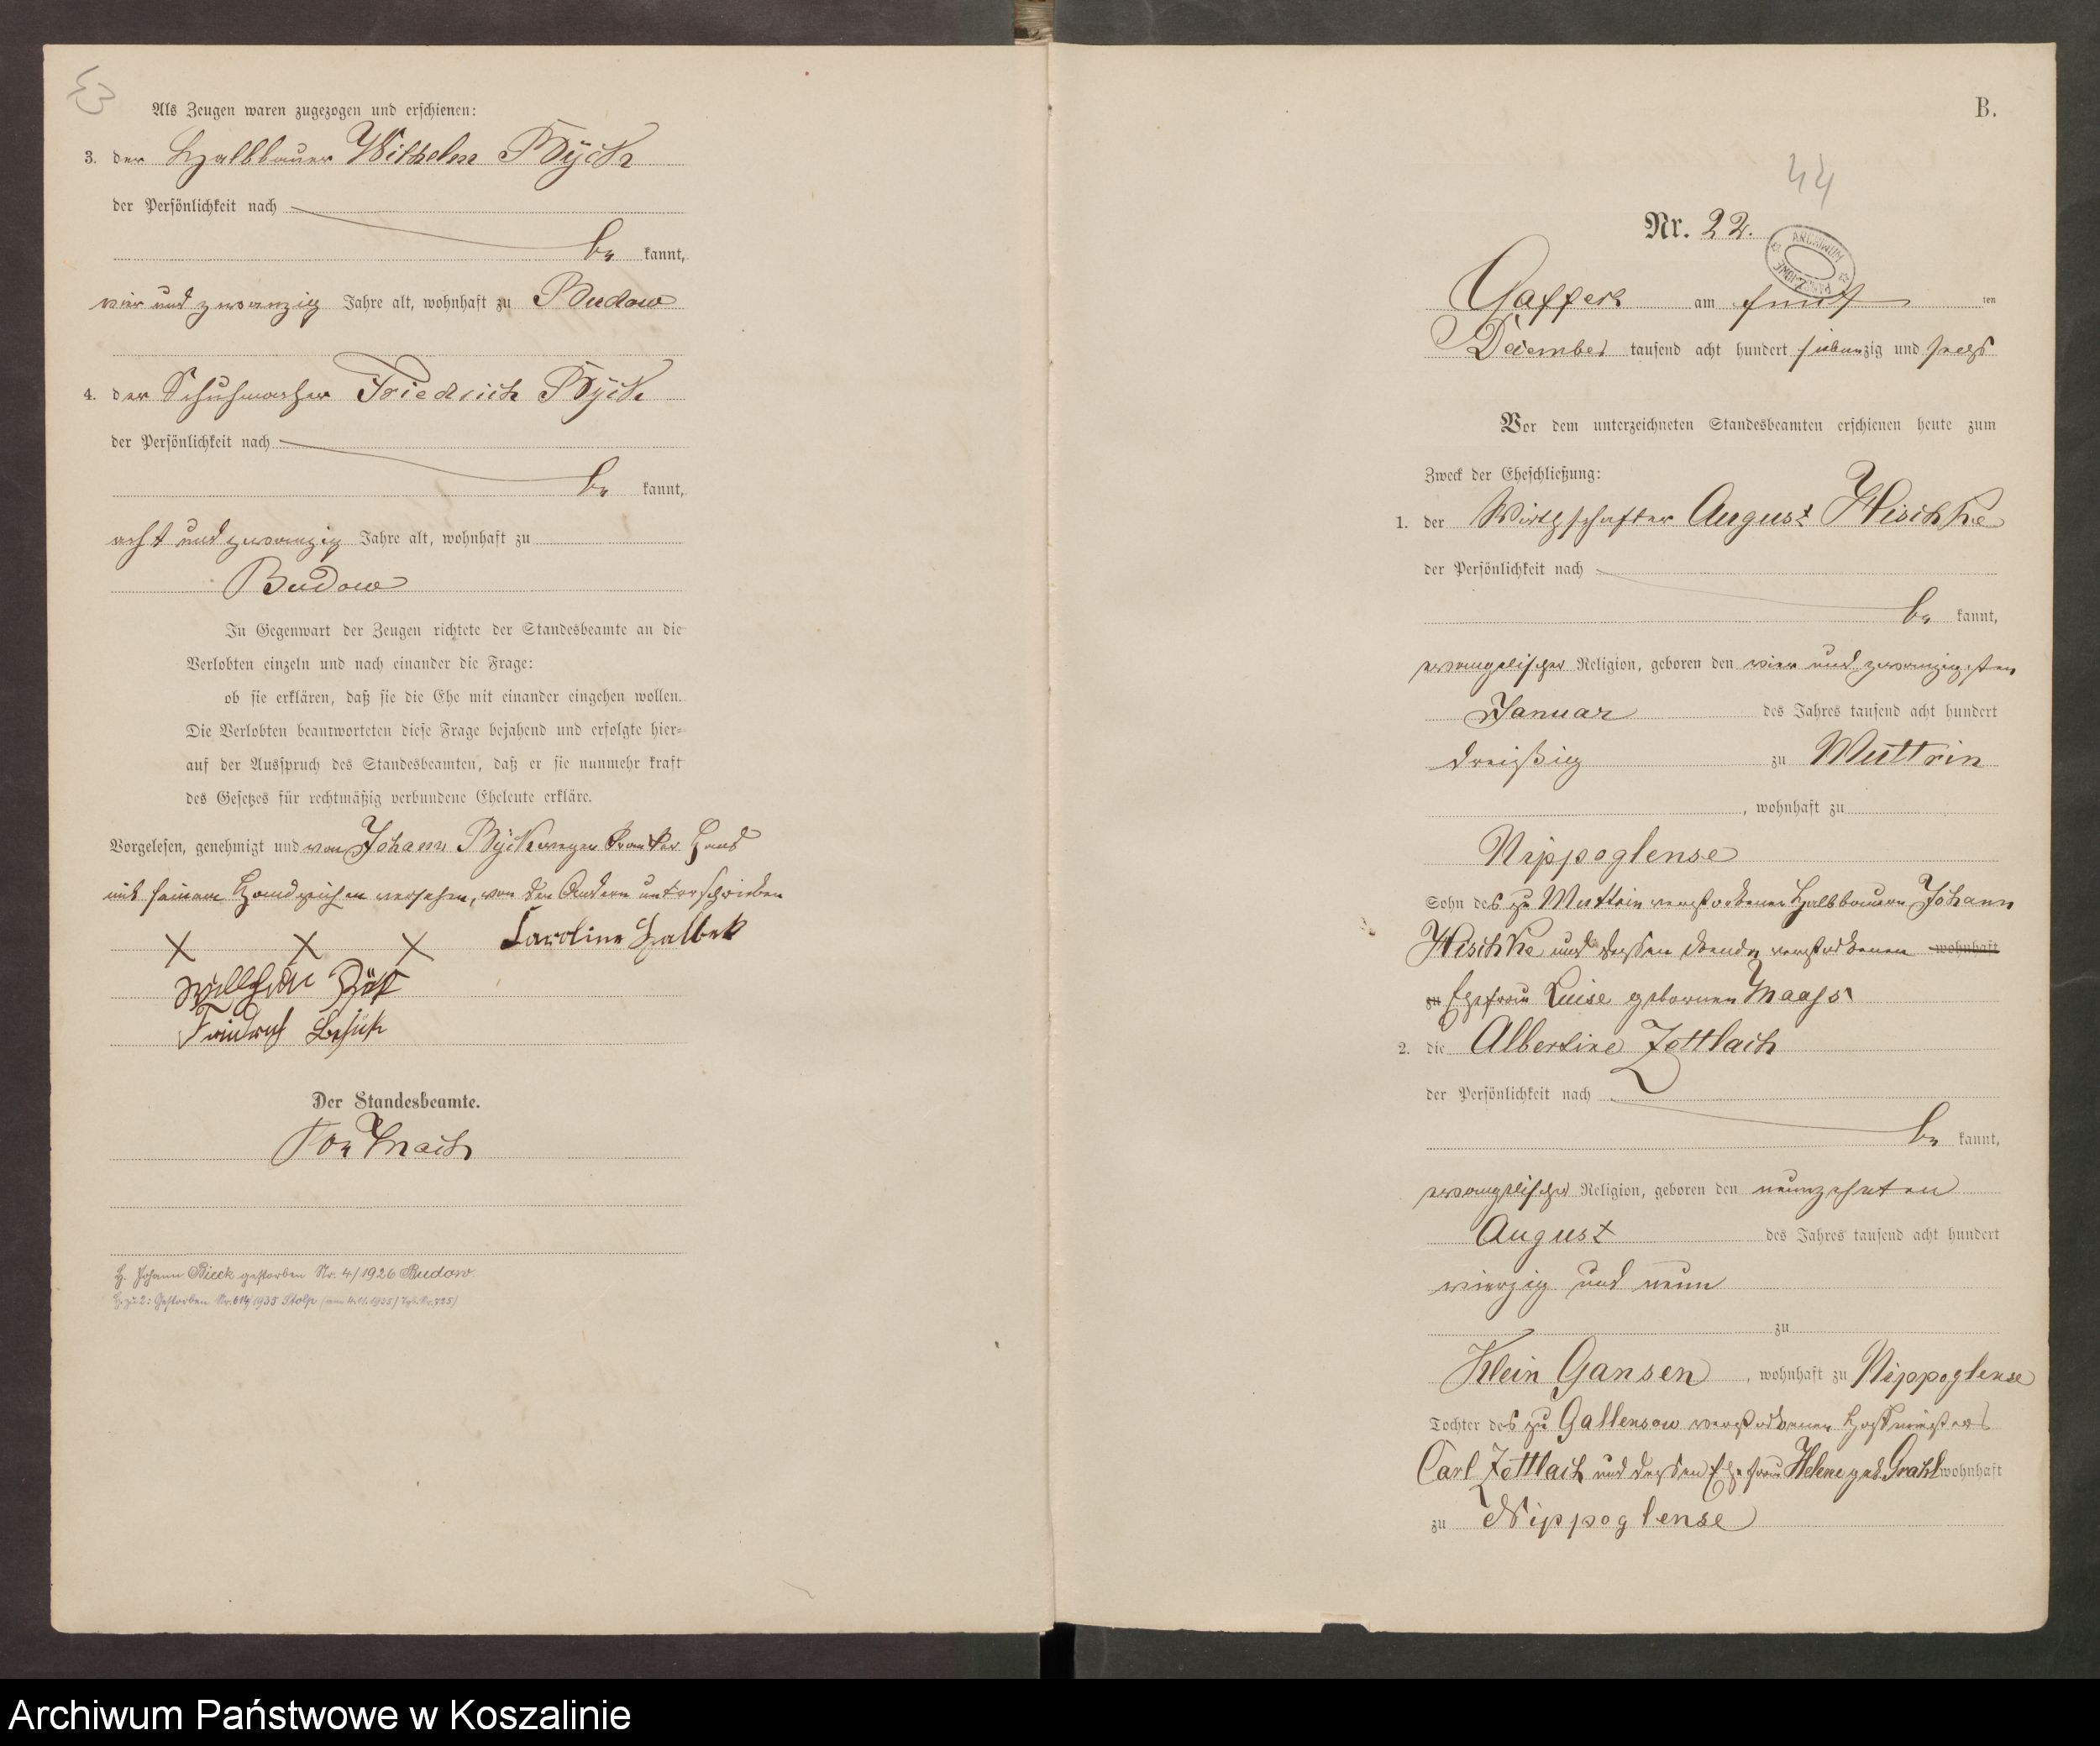 43
Als Zeugen waren zugezogen und erschienen:
3. der Halbbauer Wilhelm Byck
der Persönlichkeit nach
be kannt,
vier und zwanzig Jahre alt, wohnhaft zu Budow
4. der Schuhmacher Friedrich Byck
der Persönlichkeit nach
be kannt,
acht und zwanzig Jahre alt, wohnhaft zu
Budow
In Gegenwart der Zeugen richtete der Standesbeamte an die
Verlobten einzeln und nach einander die Frage:
ob sie erklären, daß sie die Ehe mit einander eingehen wollen.
Die Verlobten beantworteten diese Frage bejahend und erfolgte hier-
auf der Ausspruch des Standesbeamten, daß er sie nunmehr kraft
des Gesetzes für rechtmäßig verbundene Eheleute erkläre.
Vorgelesen, genehmigt und von Johann Byck wegen kranker Hand
mit seinem Handzeichen versehen, von den Andern unterschrieben
X X X Caroline Halbek
Friedrich
Der Standesbeamte.
H. Johann Bieck gestorben Nr. 4/1926 Budow
H. zu 2: Gestorben Nr. 614/1935 Stolp
B.
44
Nr. 22.
ARCHIWUM
Gaffert am fünf ten
December tausend acht hundert siebenzig und sechs
Vor dem unterzeichneten Standesbeamten erschienen heute zum
Zweck der Eheschließung:
1. der Wirthschafter August Hischke
der Persönlichkeit nach
be kannt,
evangelischer Religion, geboren den vier und zwanzigsten
Januar des Jahres tausend acht hundert
dreißig zu Muttrin
, wohnhaft zu
Nippoglense
Sohn des zu Muttrin verstorbenen Halbbauern Johann
Hischke und dessen verstorbenen wohnhaft
zu Ehefrau Luise geborenen Maass
2. die Albertine Zettlach
der Persönlichkeit nach
be kannt,
evangelischer Religion, geboren den neunzehnten
August des Jahres tausend acht hundert
vierzig und neun
zu
Klein Gansen, wohnhaft zu Nippoglense
Tochter des zu Gallensow verstorbenen
Carl Zettlach und dessen Ehefrau Helene geb. Grahl wohnhaft
zu Nippoglense
Archiwum Państwowe w Koszalinie